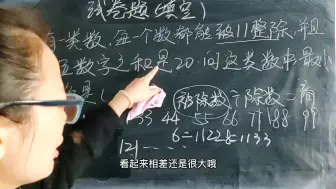 试卷题(填空)
有一类数,每一个数都能被11整除,并且
数字之和是20.问这类数中最小
是(
被除数÷除数=商
33 44 55 66 77 88 99
121
看起来相差还是很大哦